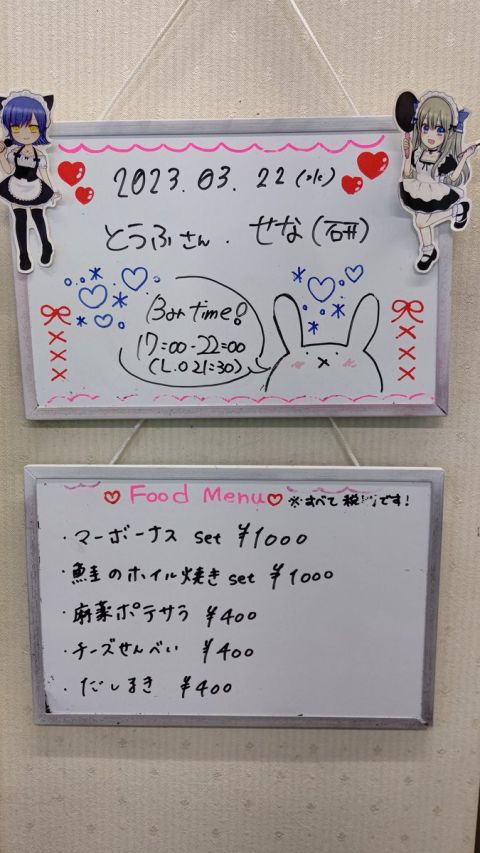 2023.03.22(水)
とうふさん. せな(研)
Bar time!
17:00-22:00
(L.O 21:30)
Food Menu
※すべて税です!
・マーボーナス set ¥1000
・鮭のホイル焼き set ¥1000
・麻薬ポテサラ ¥400
・チーズせんべい ¥400
・だしまき ¥400